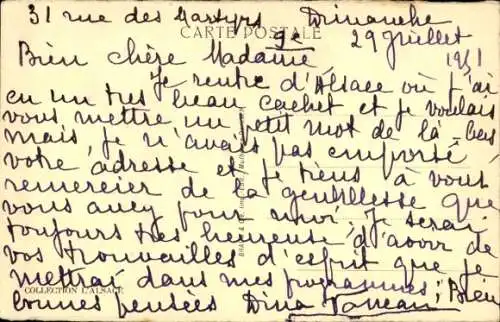 31 rue des Martyrs Dimanche
CARTE POSTALE
9e 29 Juillet
Bien chère Madame 1951
Je rentre d'Alsace où j'ai
eu un très beau cachet et je voulais
vous mettre un petit mot de là-bas
mais je n'avais pas emporté
votre adresse et je tiens à vous
remercier de la gentillesse que
vous avez pour moi. Je serai
toujours très heureuse d'avoir de
vos trouvailles d'esprit que je
mettrai dans mes programmes; Bien
COLLECTION L'ALSACE
bonnes pensées Dina